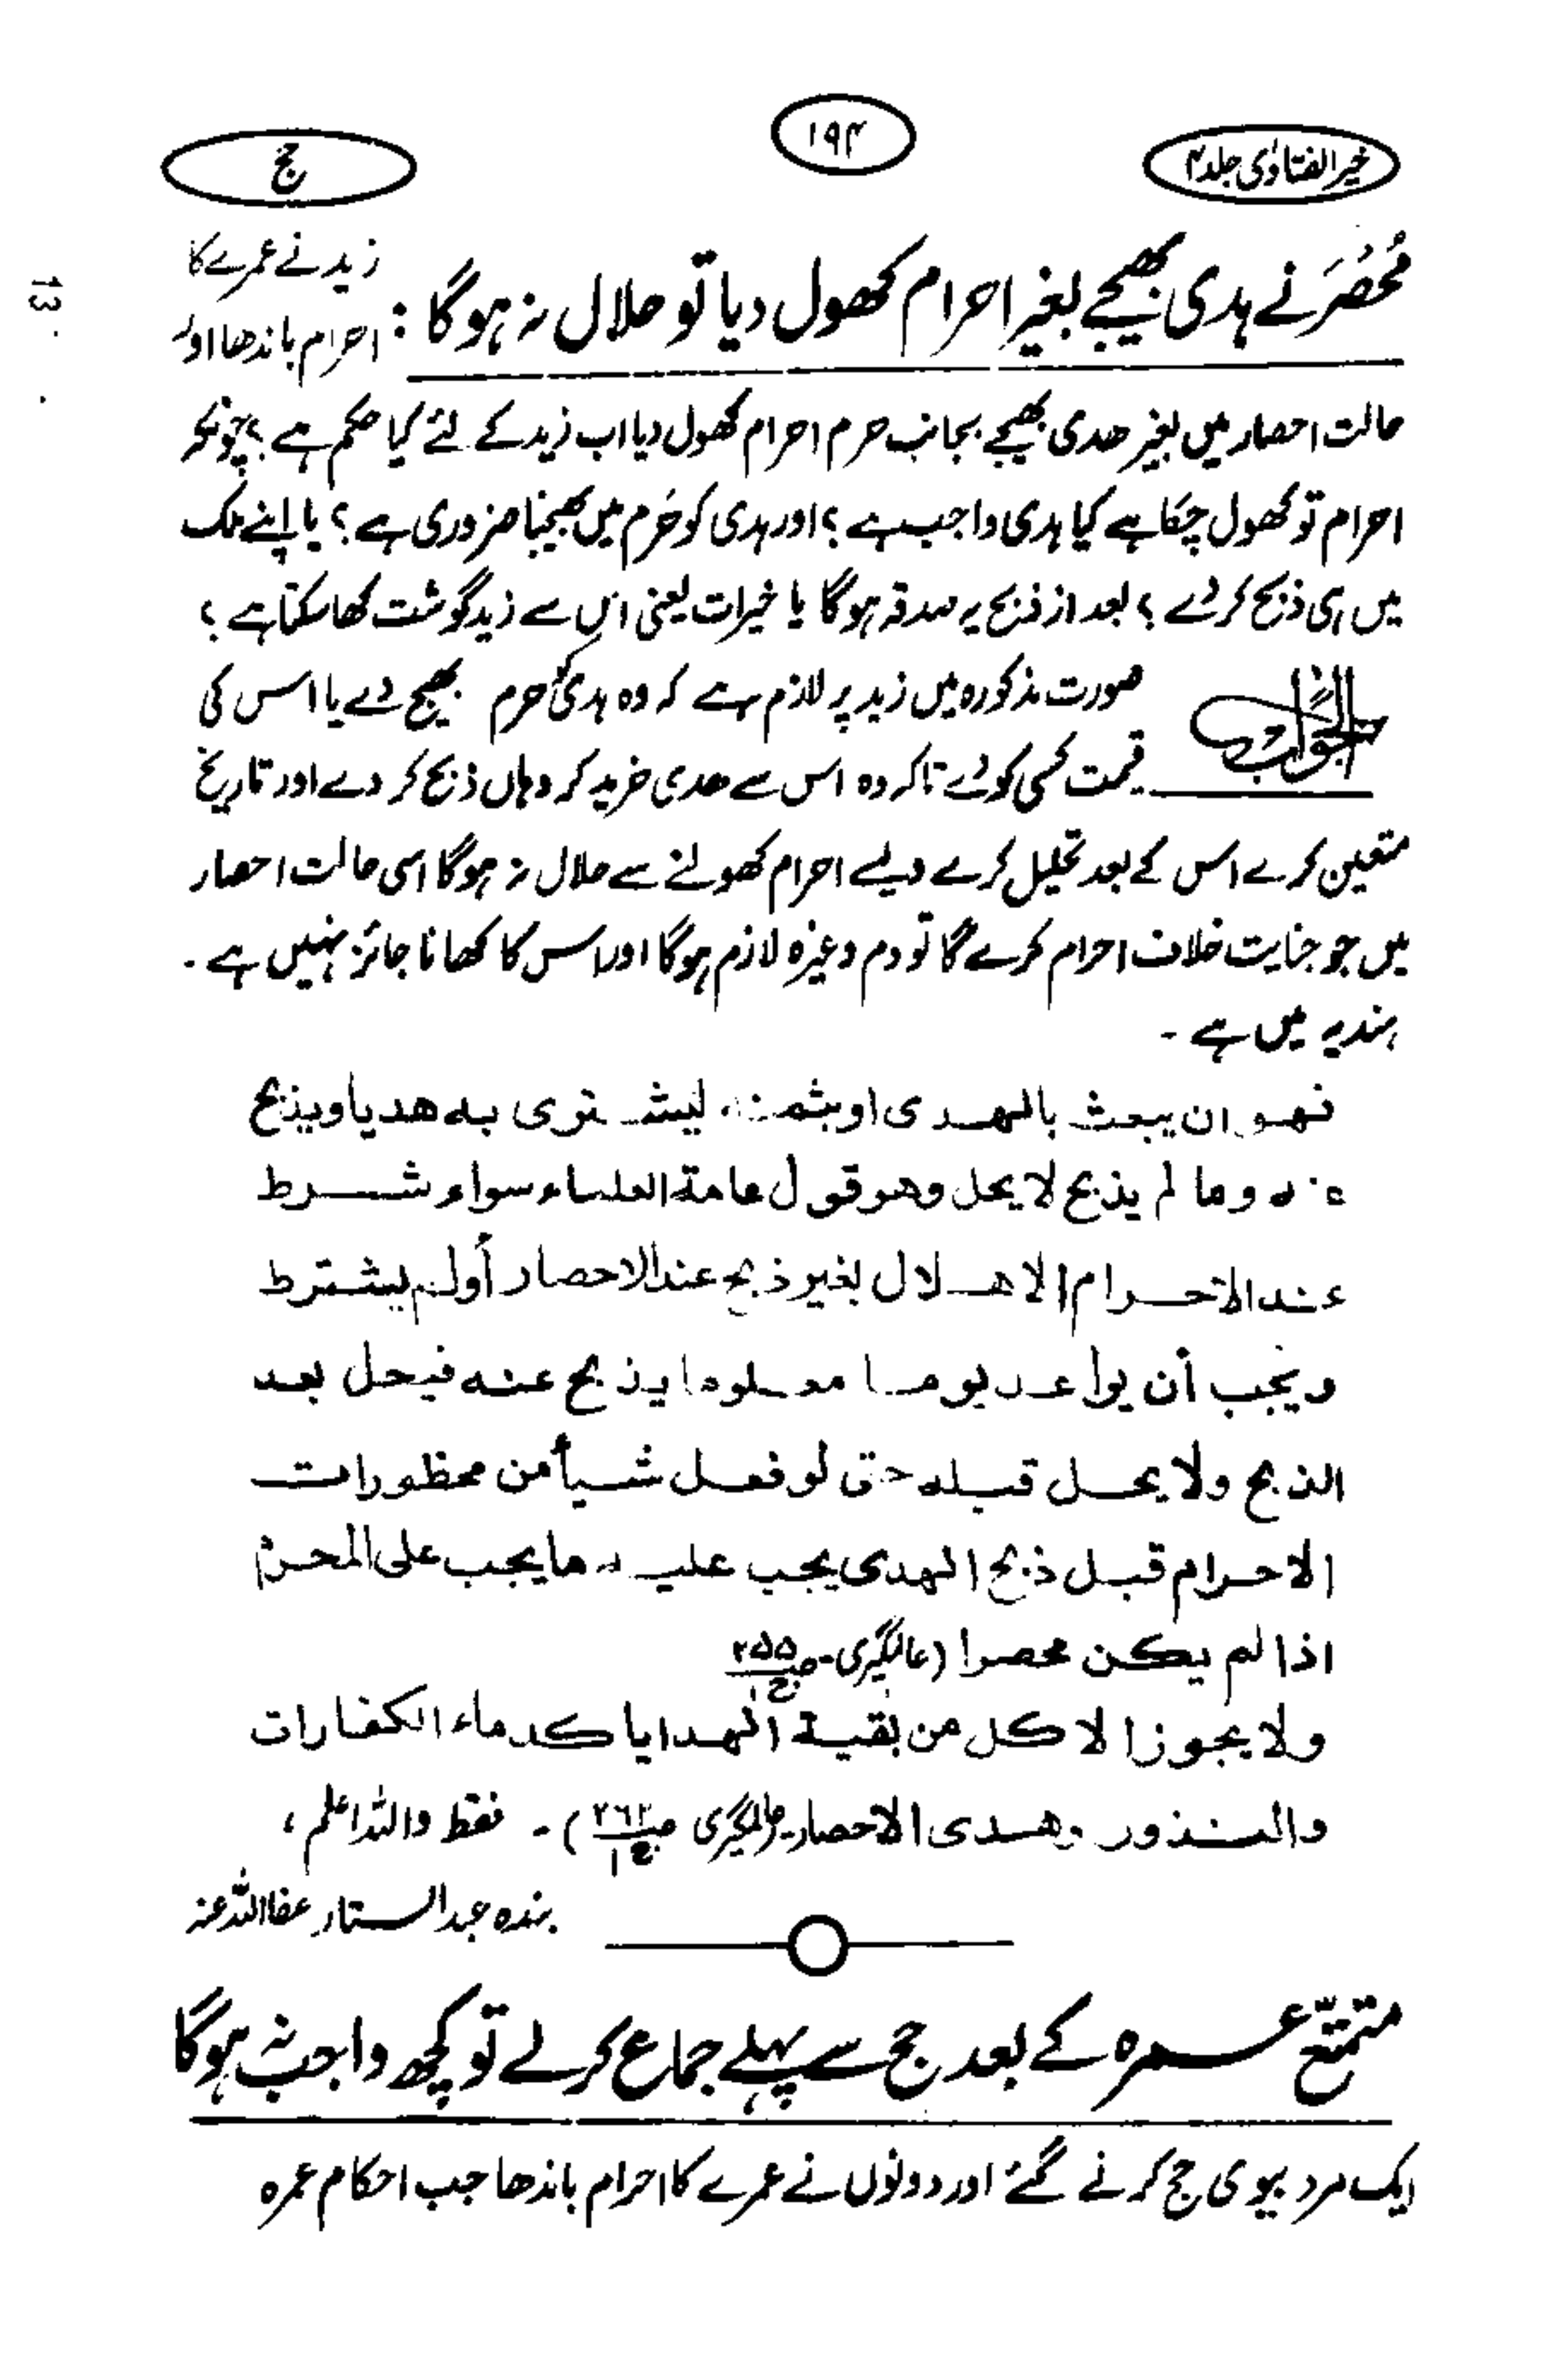 خیر الفتاویٰ جلد ۴
۱۹۴
حج
مُحصَر نے ہدی بھیجے بغیر احرام کھول دیا تو حلال نہ ہوگا : زید نے عمرے کا
احرام باندھا اور
حالت احصار میں بغیر ھدی بھیجے بجانب حرم احرام کھول دیا اب زید کے لئے کیا حکم ہے ؟ چونکہ
احرام تو کھول چکا ہے کیا ہدی واجب ہے ؟ اور ہدی کو حَرم میں بھیجنا ضروری ہے ؟ یا اپنے ملک
میں ہی ذبح کر دے ؟ بعد از ذبح یہ صدقہ ہوگا یا خیرات یعنی اس سے زید گوشت کھا سکتا ہے ؟
الجواب
صورت مذکورہ میں زید پر لازم ہے کہ وہ ہدی کو حرم بھیج دے یا اس کی
قیمت کسی کو دے تاکہ وہ اس سے ھدی خرید کر وہاں ذبح کر دے اور تاریخ
متعین کرے اس کے بعد تحلیل کرے ویسے احرام کھولنے سے حلال نہ ہوگا اسی حالت احصار
میں جو جنایت خلاف احرام کرے گا تو دم وغیرہ لازم ہوگا اور اس کا کھانا جائز نہیں ہے ۔
ہندیہ میں ہے ۔
فهو ان يبعث بالهدى او بثمنه ليشترى به هديا ويذبح
عنه وما لم يذبح لا يحل وهو قول عامة العلماء سواء شرط
عند الاحرام الاهلال بغير ذبح عند الاحصار أولم يشترط
ويجب أن يواعد يوما معلوما يذبح عنه فيحل بعد
الذبح ولا يحل قبله حتى لو فعل شيأ من محظورات
الاحرام قبل ذبح الهدى يجب عليه ما يجب على المحرم
اذا لم يكن محصرا (عالمگیری ۔ ص۲۵۵ ج۱
ولا يجوز الاكل من بقية الهدايا كدماء الكفارات
والنذور وهدى الاحصار (عالمگیری ص۲۶۲ ج۱) ۔ فقط واللہ اعلم ،
بندہ عبدالستار عفا اللہ عنہ
متمتّع عمرہ کے بعد حج سے پہلے جماع کرلے تو کچھ واجب نہ ہوگا
ایک مرد بیوی حج کرنے گئے اور دونوں نے عمرے کا احرام باندھا جب احکام عمرہ
13